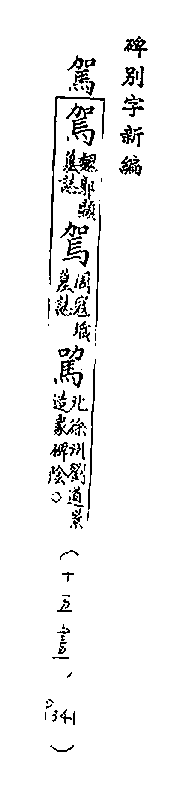 碑別字新編
駕
駕魏郭顯墓誌
駕周寇熾墓誌
䮠北徐州劉道景造象碑陰。
(十五畫,P341)